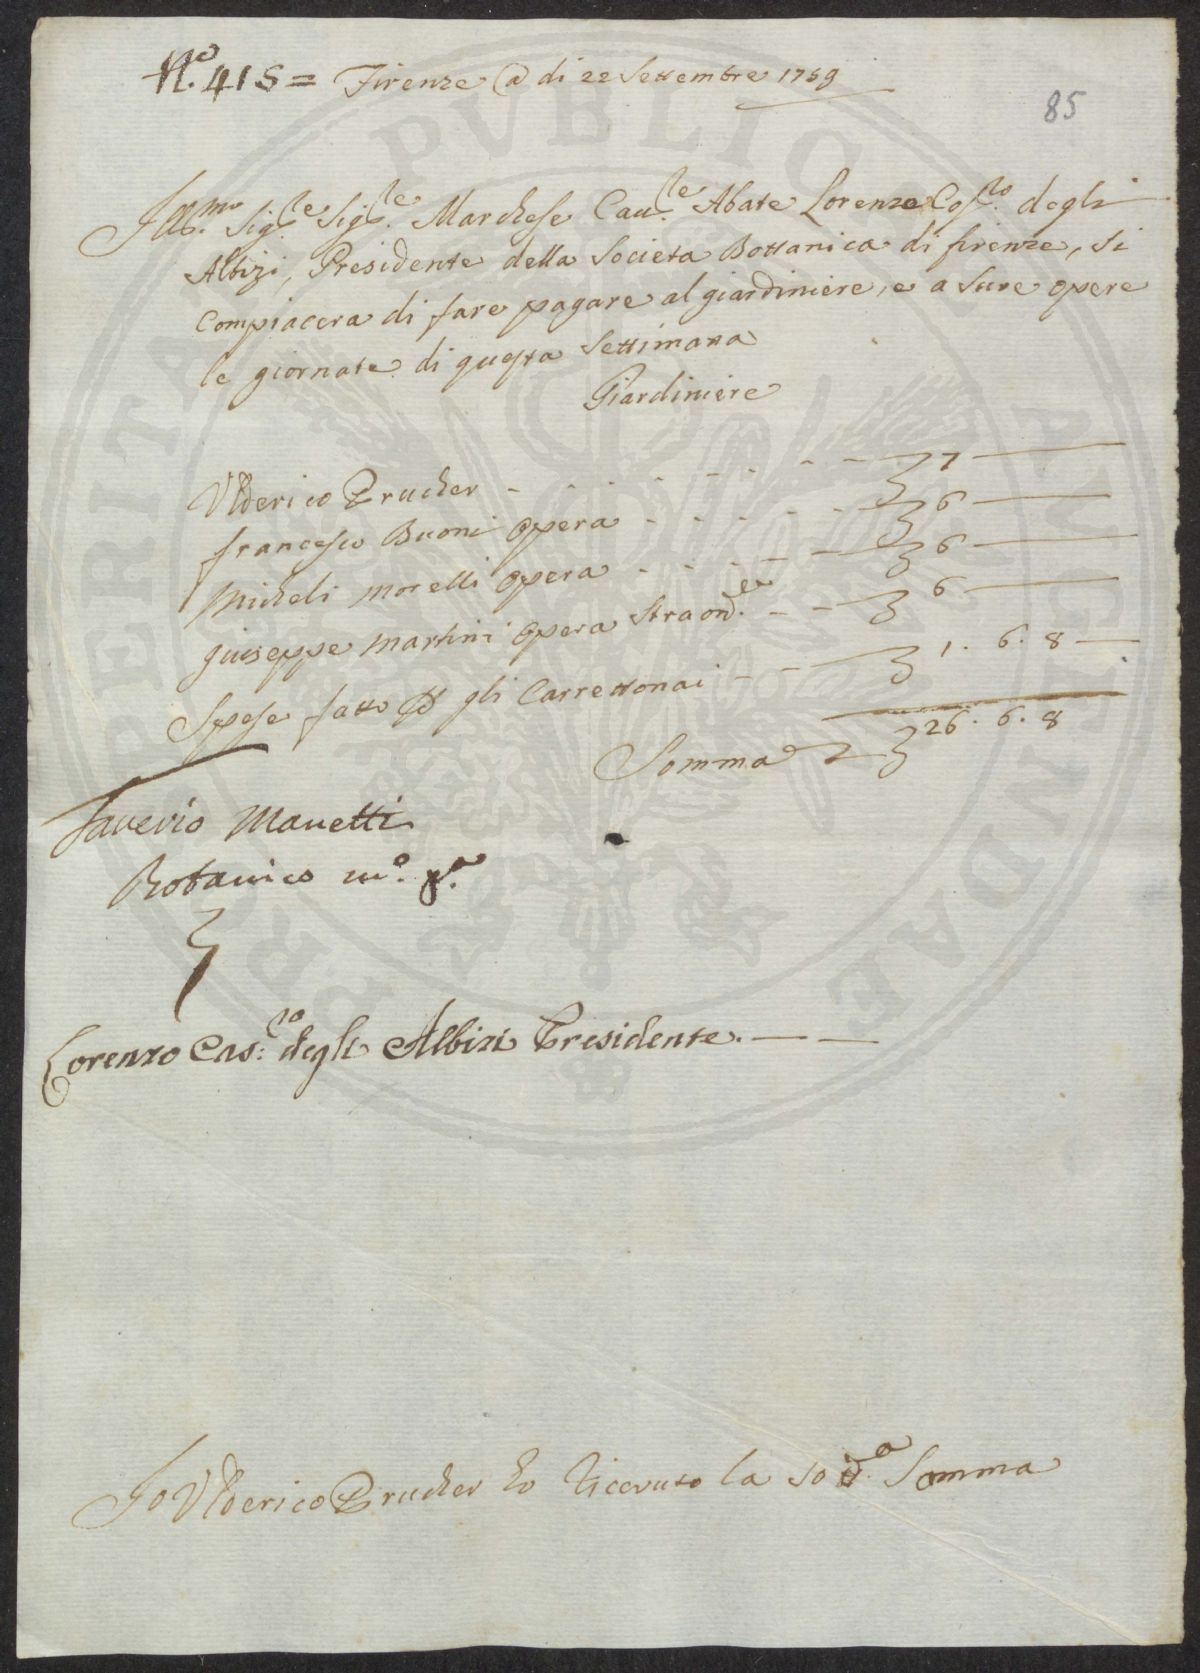 N.o 415 = Firenze @ di 22 Settembre 1759
85
Ill.mo Sig.re Sig.re Marchese Cau.re Abate Lorenzo Cos.zo degli
Albizi, Presidente della Societa Bottanica di firenze, si
Compiacera di fare pagare al giardiniere, e a sure opere
le giornate di questa Settimana
Giardiniere
Ulderico Prucher - - - - - - - 7 —
francesco Buoni opera - - - - - - 6 —
Micheli Morelli opera - - - - - 6 —
giuseppe Martini opera Straord.ra - - 6 —
Spese fatto p gli Carrettonai - - 1. 6. 8 —
Somma 26. 6. 8
Saverio Manetti
Botanico m.o p.a
Lorenzo Cas.zo degli Albizi Presidente. — —
Io Ulderico Prucher ho ricevuto la so d.a Somma
PROPRIETAS PVBLICAE PVBLICA